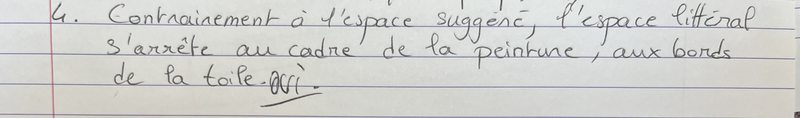 4. Contrairement à l'espace suggéré, l'espace littéral
s'arrête au cadre de la peinture, aux bords
de la toile. oui.